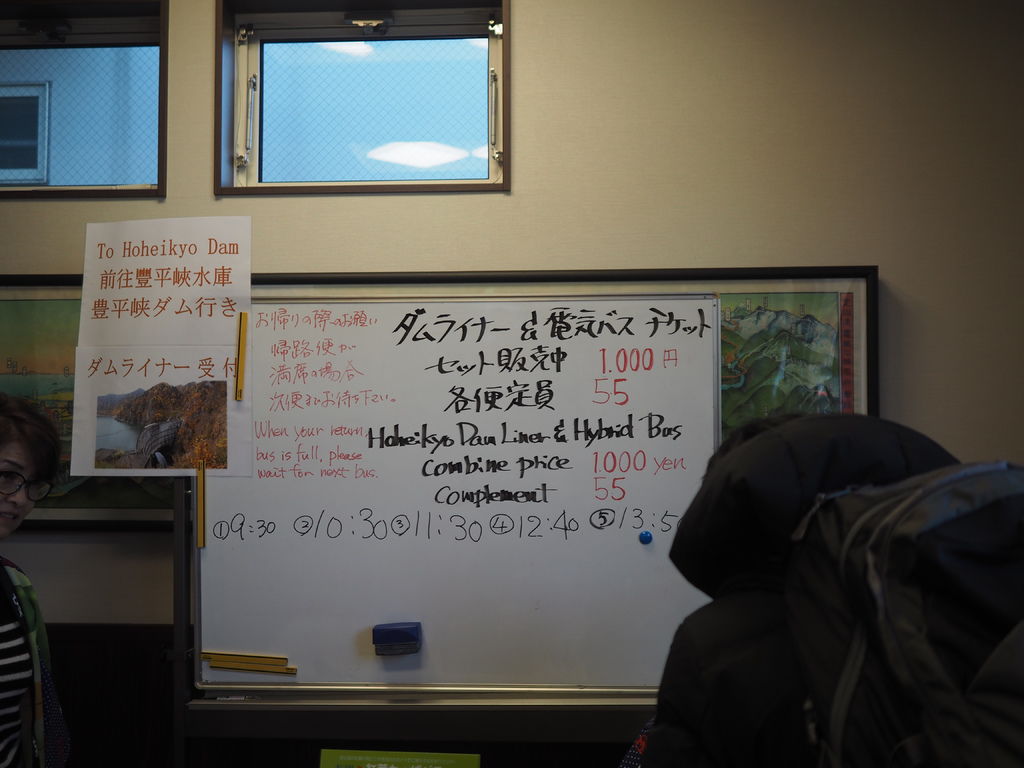 To Hoheikyo Dam
前往豐平峽水庫
豊平峡ダム行き
ダムライナー 受付
お帰りの際のお願い
帰路便が
満席の場合
次便までお待ち下さい。
When your return
bus is full, please
wait for next bus.
ダムライナー & 電気バス チケット
セット販売中 1.000 円
各便定員 55
Hoheikyo Dam Liner & Hybrid Bus
Combine price 1.000 yen
Complement 55
①9:30 ②10:30 ③11:30 ④12:40 ⑤13:5